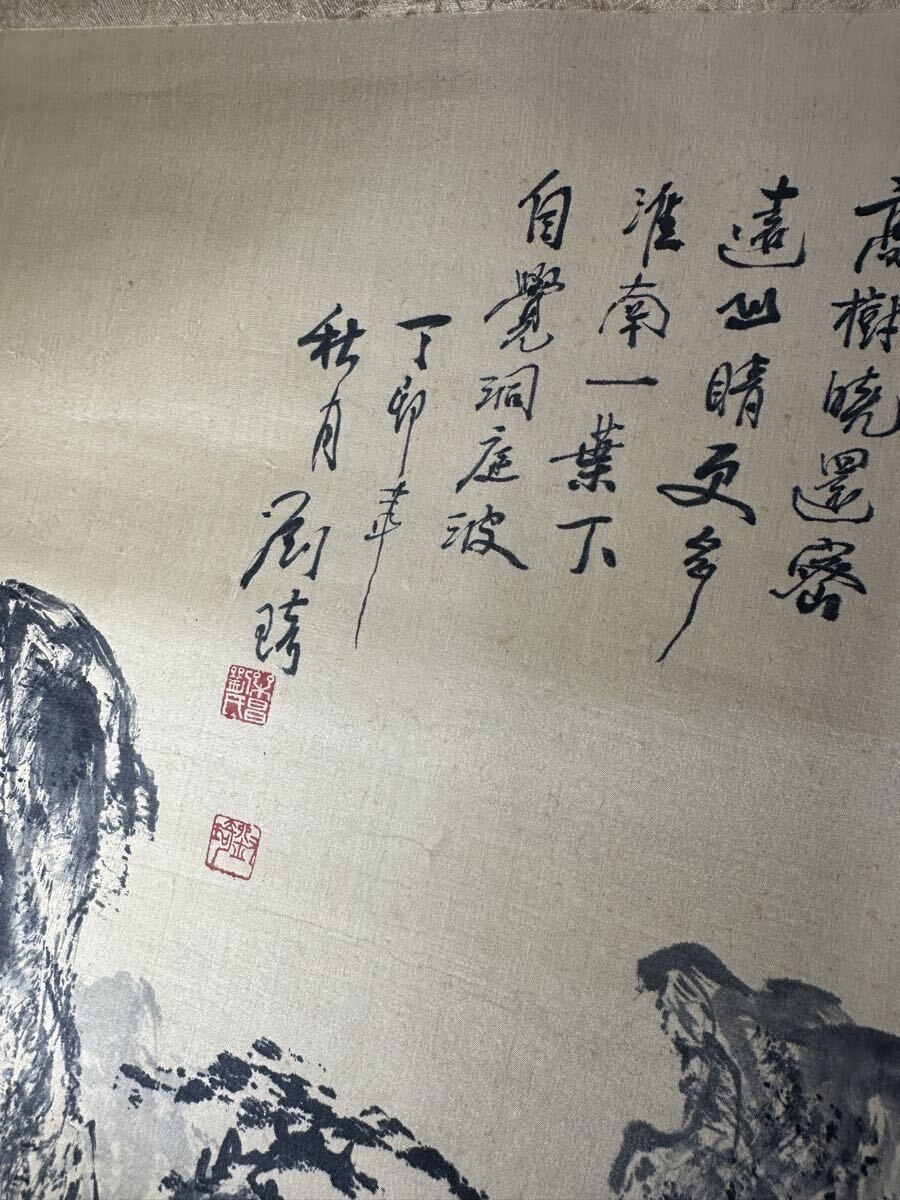 高樹曉還密
遠山晴更多
淮南一葉下
自覺洞庭波
丁卯年
秋月
劉琦
劉琦